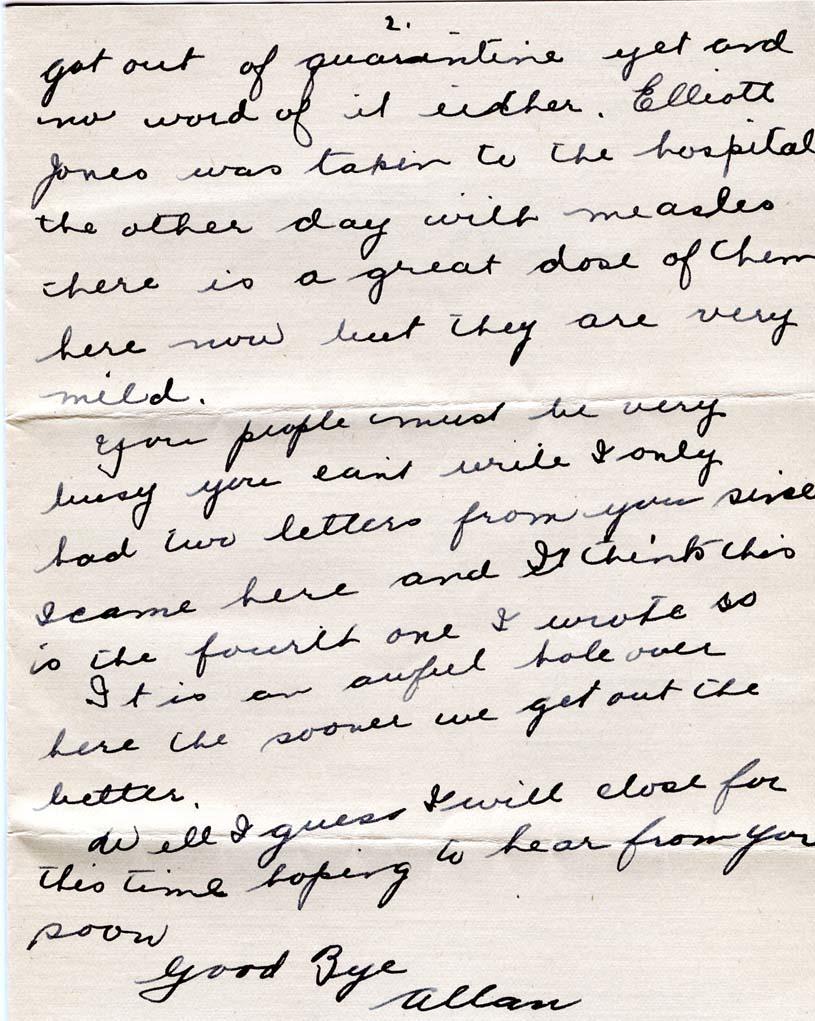 2.
got out of quarantine yet and
no word of it either. Elliott
Jones was taken to the hospital
the other day with measles
there is a great dose of them
here now but they are very
mild.
You people must be very
busy you cant write I only
had two letters from you since
I came here and I think this
is the fourth one I wrote so
It is an awful hole over
here the sooner we get out the
better.
Well I guess I will close for
this time hoping to hear from you
soon
Good Bye
Allan